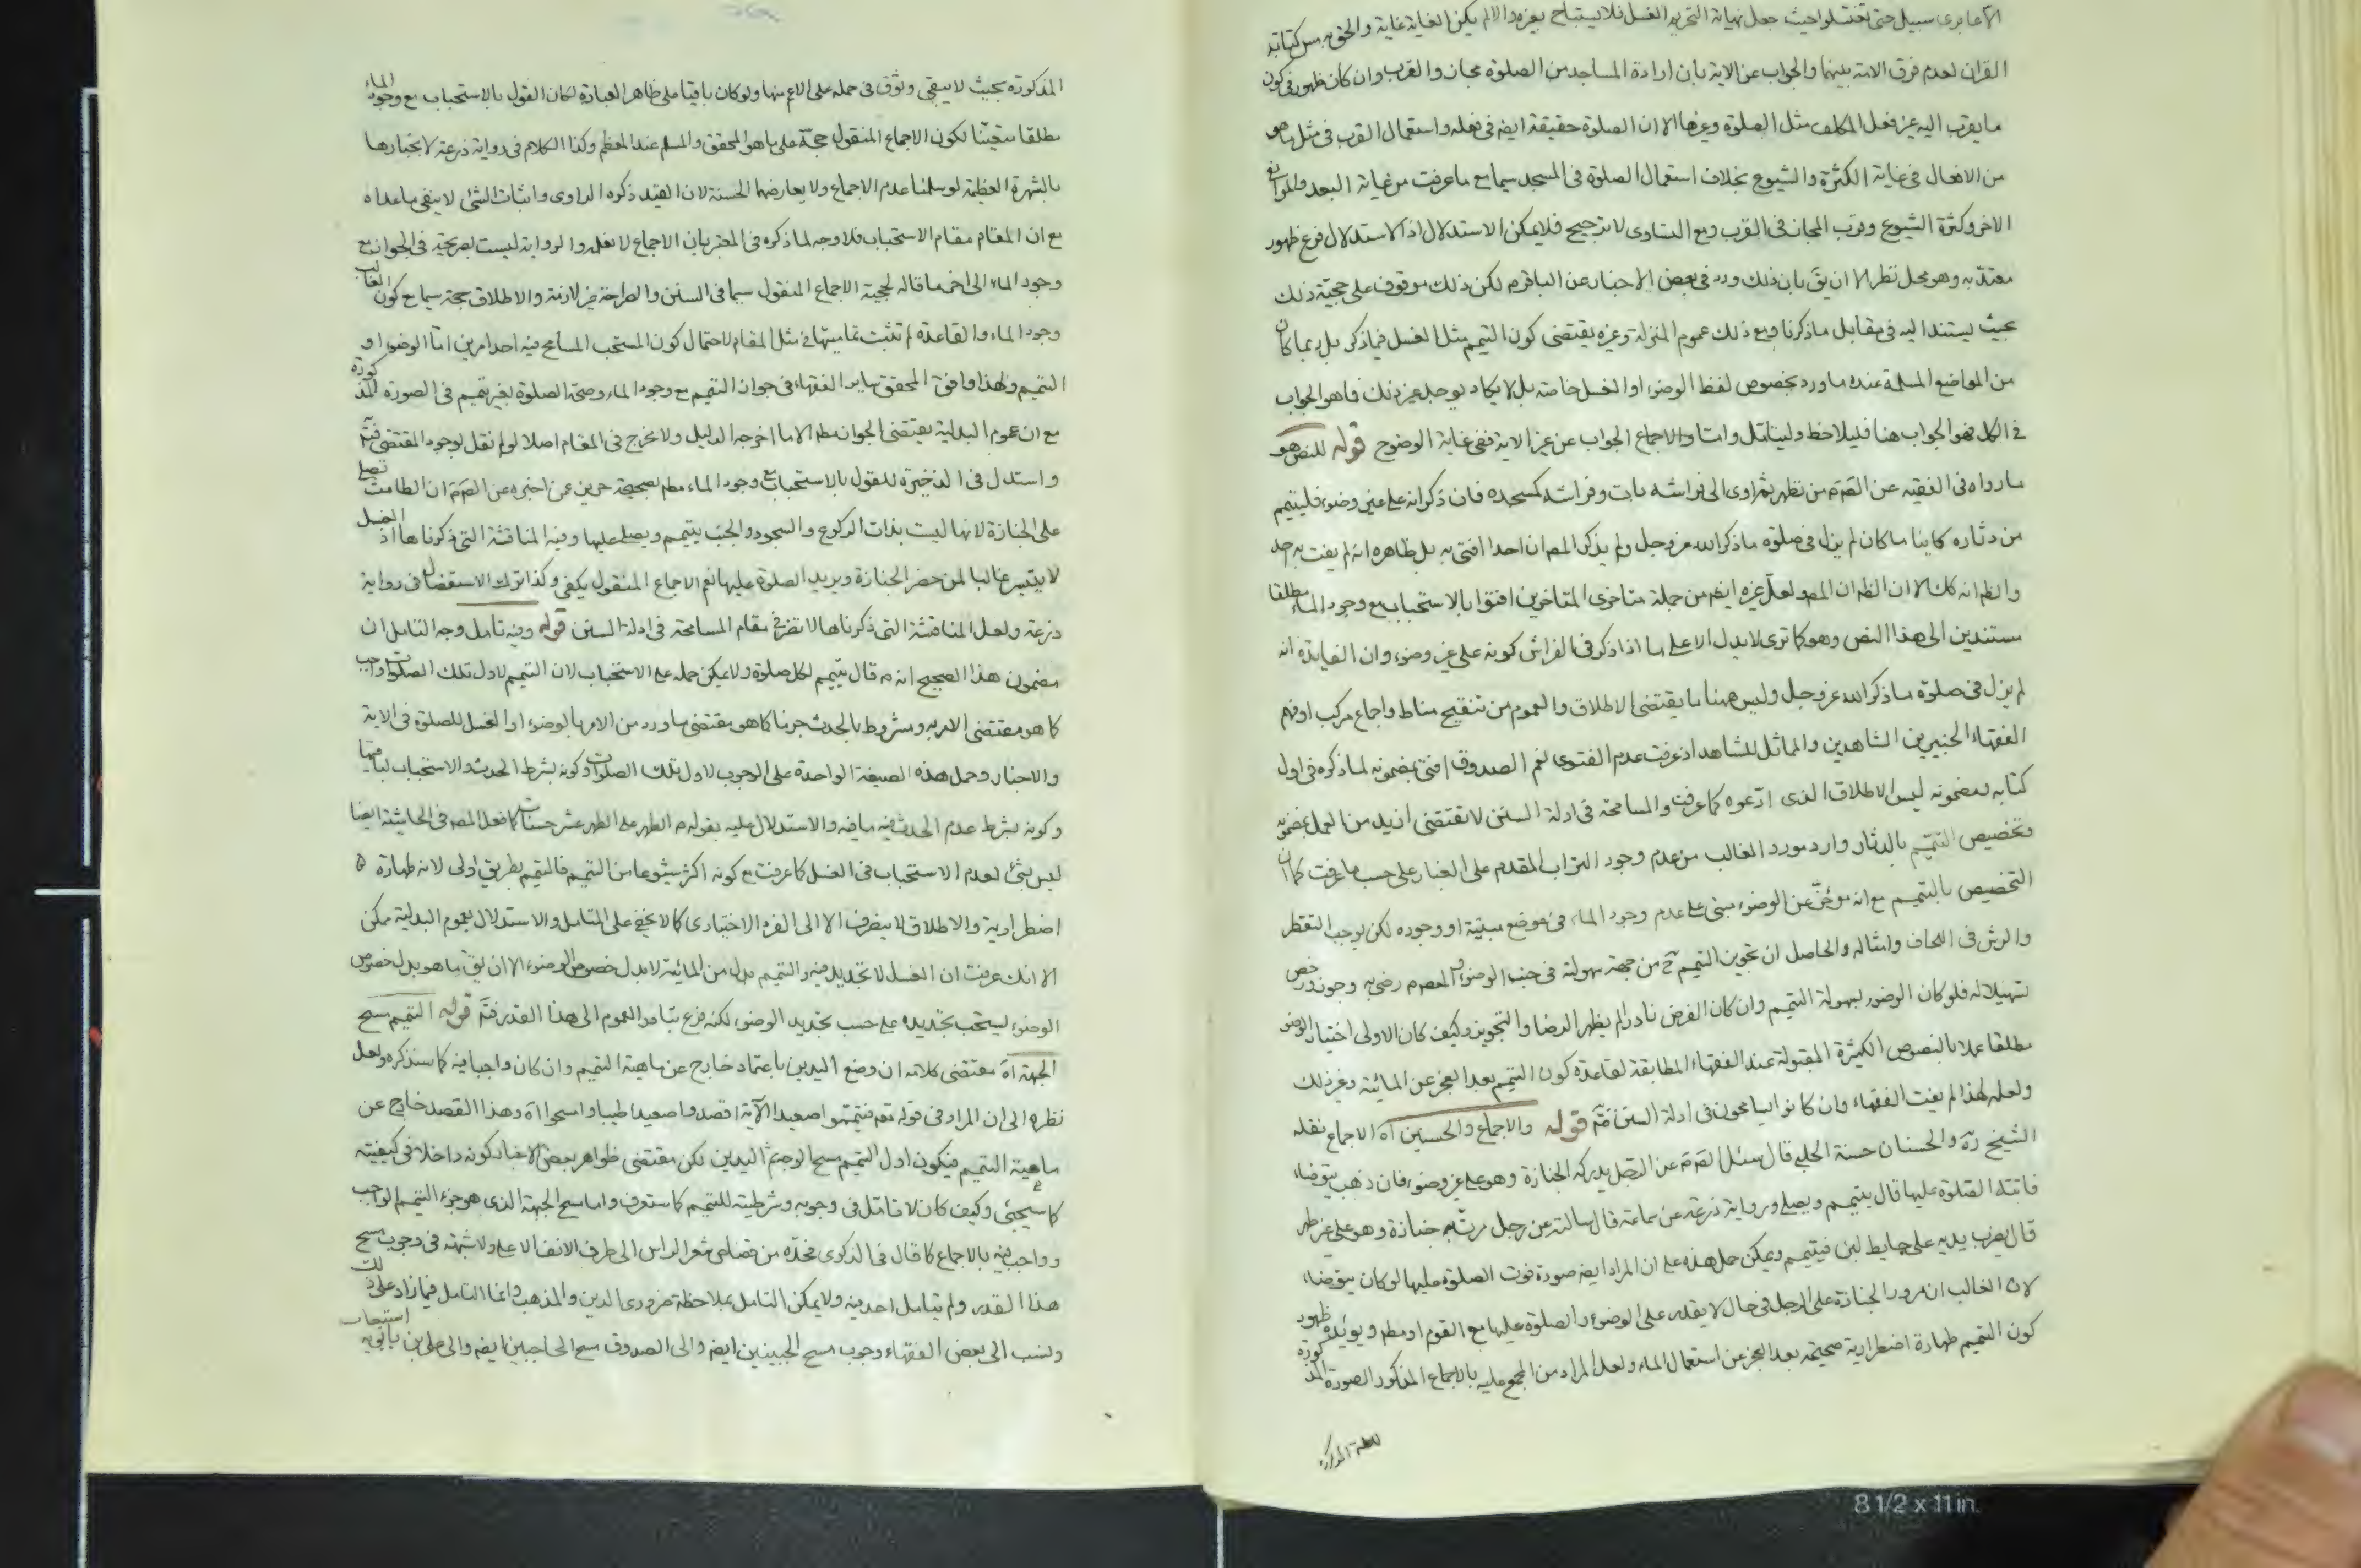 الا عابرى سبيل حتى تغتسلوا حيث جعل نهاية التحريم الغسل فلا يستباح بغيره والا لم يكن الغاية غاية والحق به مس كتابة
القران لعدم فرق الامة بينهما والجواب عن الاية بان ارادة المساجد من الصلوة مجاز والقرب وان كان ظهور فى كون
ما يقرب اليه عن فعل المكلف مثل الصلوة وغيرها الا ان الصلوة حقيقة ايضا فى فعله واستعمال القرب فى مثل ما هو
من الافعال فى غاية الكثرة والشيوع بخلاف استعمال الصلوة فى المسجد سيما مع ما عرفت من غاية البعد والموانع
الاخر وكثرة الشيوع وقرب المجاز فى القرب ومع التساوى لا ترجيح فلا يمكن الاستدلال اذ الاستدلال فرع ظهور
معتد به وهو محل نظر الا ان يق بان ذلك ورد فى بعض الاخبار عن الباقر م لكن ذلك موقوف على حجية ذلك
بحيث يستند اليه فى مقابل ما ذكرنا ومع ذلك عموم المنزلة وغيره يقتضى كون التيمم مثل الغسل فيما ذكر بل ربما كان
من المواضع المسلمة عنده ما ورد بخصوص لفظ الوضوء او الغسل خاصة بل لا يكاد يوجد غير ذلك فما هو الجواب
فى الكل فهو الجواب هنا فليلاحظ وليتامل واما والاجماع الجواب عن غير الاية ففى غاية الوضوح قوله للنص هو
ما رواه فى الفقيه عن الصم من تطهر ثم اوى الى فراشه بات وفراشه كمسجده فان ذكر انه على غير وضوء فليتيمم
من دثاره كاينا ما كان لم يزل فى صلوة ما ذكر الله عز وجل ولم يذكر المص ان احدا افتى به بل ظاهره انه لم يفت به احد
والظ انه كك الا ان الظ ان المص ولعل غيره ايضا من جملة متاخرى المتاخرين افتوا بالاستحباب مع وجود الماء مطلقا
مستندين الى هذا النص وهو كما ترى لا يدل الا على ما اذا ذكر فى الفراش كونه على غير وضوء وان الفايدة انه
لم يزل فى صلوة ما ذكر الله عز وجل وليس ههنا ما يقتضى الاطلاق والعموم من تنقيح مناط واجماع مركب او فهم
الفقهاء الخبيرين الشاهدين والماثل للشاهد اذ عرفت عدم الفتوى نعم الصدوق افتى بمضمونه لما ذكره فى اول
كتابه ومضمونه ليس الاطلاق الذى ادعوه كما عرفت والمسامحة فى ادلة السنن لا تقتضى ازيد من العمل بمضمونه
وتخصيص التيمم بالدثار وارد مورد الغالب من عدم وجود التراب المقدم على الغبار على حسب ما عرفت كما ان
التخصيص بالتيمم مع انه مؤخر عن الوضوء مبنى على عدم وجود الماء فى موضع مبيته او وجوده لكن يوجب التقطر
والرش فى اللحاف وامثاله والحاصل ان تجويز التيمم ح من جهة سهولة فى جنب الوضوء المعصوم رضى به وجوز ورخص
تسهيلا له فلو كان الوضوء بسهولة التيمم وان كان الفرض نادرا لم يظهر الرضا والتجويز وكيف كان الاولى اختيار الوضوء
مطلقا عملا بالنصوص الكثيرة المقبولة عند الفقهاء المطابقة لقاعدة كون التيمم بعد العجز عن المائية وغير ذلك
ولعله لهذا لم يفت الفقهاء وان كانوا يسامحون فى ادلة السنن فتم قوله والاجماع والحسنين اه الاجماع نقله
الشيخ ره والحسنان حسنة الحلبى قال سئل الصم عن الرجل يدركه الجنازة وهو على غير وضوء فان ذهب يتوضاء
فاتته الصلوة عليها قال يتيمم ويصلى ورواية زرعة عن سماعة قال سالته عن رجل مرت به جنازة وهو على غير طهر
قال يضرب يديه على حايط لبن فيتيمم ويمكن حمل هذه على ان المراد ايضا صورة فوت الصلوة عليها لو كان يتوضاء
لان الغالب ان مرور الجنازة على الرجل فى حال لا يقدر على الوضوء والصلوة عليها مع القوم او مطم ويؤيده ظهور
كون التيمم طهارة اضطرارية صحيحة بعد العجز عن استعمال الماء ولعل المراد من المجمع عليه بالاجماع المذكور الصورة المذكورة
المذكورة بحيث لا يبقى وثوق فى حمله على الاعم منها ولو كان باقيا على ظاهر العبارة لكان القول بالاستحباب مع وجود الماء
مطلقا متعينا لكون الاجماع المنقول حجة على ما هو المحقق والمسلم عند المعظم وكذا الكلام فى رواية زرعة لانجبارها
بالشهرة العظيمة لو سلمنا عدم الاجماع ولا يعارضها الحسنة لان القيد ذكره الراوى واثبات الشئ لا ينفى ما عداه
مع ان المقام مقام الاستحباب فلا وجه لما ذكره فى المعتبر بان الاجماع لا نعلمه والرواية ليست بصريحة فى الجواز مع
وجود الماء الى اخر ما قاله لحجية الاجماع المنقول سيما فى السنن والصراحة غير لازمة والاطلاق حجة سيما مع كون الغالب
وجود الماء والقاعدة لم تثبت تماميتها فى مثل المقام لاحتمال كون المستحب المسامح فيه احد امرين اما الوضوء او
التيمم ولهذا وافق المحقق ساير الفقهاء فى جواز التيمم مع وجود الماء وصحة الصلوة بغير تيمم فى الصورة المذكورة
مع ان عموم البدلية يقتضى الجواز مطم الا ما اخرجه الدليل ولا مخرج فى المقام اصلا لو لم نقل بوجود المقتضى فتم
واستدل فى الذخيرة للقول بالاستحباب مع وجود الماء مطم بصحيحة حريز عمن اخبره عن الصم ان الطامث تصلى
على الجنازة لانها ليست بذات الركوع والسجود والجنب يتيمم ويصلى عليها وفيه المناقشة التى ذكرناها اذ الغسل
لا يتيسر غالبا لمن حضر الجنازة ويريد الصلوة عليها نعم الاجماع المنقول يكفى وكذا ترك الاستفصال فى رواية
زرعة ولعل المناقشة التى ذكرناها لا تضر فى مقام المسامحة فى ادلة السنن قوله وفيه تامل وجه التامل ان
مضمون هذا الصحيح انه م قال يتيمم لكل صلوة ولا يمكن حمله على الاستحباب لان التيمم لاول تلك الصلوات واجب
كما هو مقتضى الامر به ومشروط بالحدث جزما كما هو مقتضى ما ورد من الامر بالوضوء او الغسل للصلوة فى الاية
والاخبار وحمل هذه الصيغة الواحدة على الوجوب لاول تلك الصلوات وكونه بشرط الحدث والاستحباب لباقيها
وكونه بشرط عدم الحدث فيه ما فيه والاستدلال عليه بقوله م الطهر على الطهر عشر حسنات كما فعل المص فى الحاشية ايضا
ليس بشئ لعدم الاستحباب فى الغسل كما عرفت مع كونه اكثر شيوعا من التيمم فالتيمم بطريق اولى لانه طهارة
اضطرارية والاطلاق لا ينصرف الا الى الفرد الاختيارى كما لا يخفى على المتامل والاستدلال بعموم البدلية يمكن
الا انك عرفت ان الغسل لا تجديد فيه والتيمم بدل من المائية لا بدل خصوص الوضوء الا ان يق ما هو بدل خصوص
الوضوء يستحب تجديده على حسب تجديد الوضوء لكنه فرع تبادر العموم الى هذا القدر فتم قوله التيمم مسح
الجبهة اه مقتضى كلامه ان وضع اليدين باعتماد خارج عن ماهية التيمم وان كان واجبا فيه كما سنذكره ولعل
نظره الى ان المراد فى قوله تعم فتيمموا صعيدا الاية اقصدوا صعيدا طيبا وامسحوا اه وهذا القصد خارج عن
ماهية التيمم فيكون اول التيمم مسح الوجه ثم اليدين لكن مقتضى ظواهر بعض الاخبار كونه داخلا فى كيفيته
كما سيجئ وكيف كان لا تامل فى وجوبه وشرطيته للتيمم كما ستعرف واما مسح الجبهة الذى هو جزء التيمم الواجب
وواجب فيه بالاجماع كما قال فى الذكرى فحده من قصاص شعر الراس الى طرف الانف الاعلى ولا شبهة فى وجوب مسح
هذا القدر ولم يتامل احد فيه ولا يمكن التامل بملاحظة ضرورى الدين والمذهب وانما التامل فيما زاد على ذلك
ونسب الى بعض الفقهاء وجوب مسح الجبينين ايضا والى الصدوق مسح الحاجبين ايضا والى على بن بابويه استيعاب